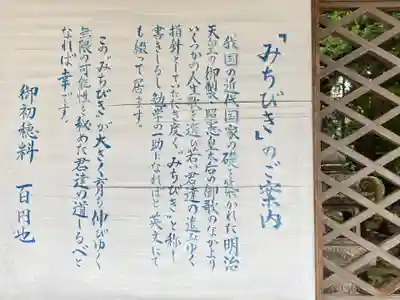 「みちびき」のご案内
我国の近代国家の礎を築かれた明治
天皇の御製と昭憲皇太后の御歌のなかより
いくつかの人生歌を選び若い君達の進みゆく
指針としていたゞき度く、みちびきと称し
書きしるし勉学の一助となればと英文にて
も綴って居ます。
この“みちびき”が大きく育ち伸びゆく
無限の可能性を秘めた君達の道しるべと
なれば幸です。
御初穂料 百円也